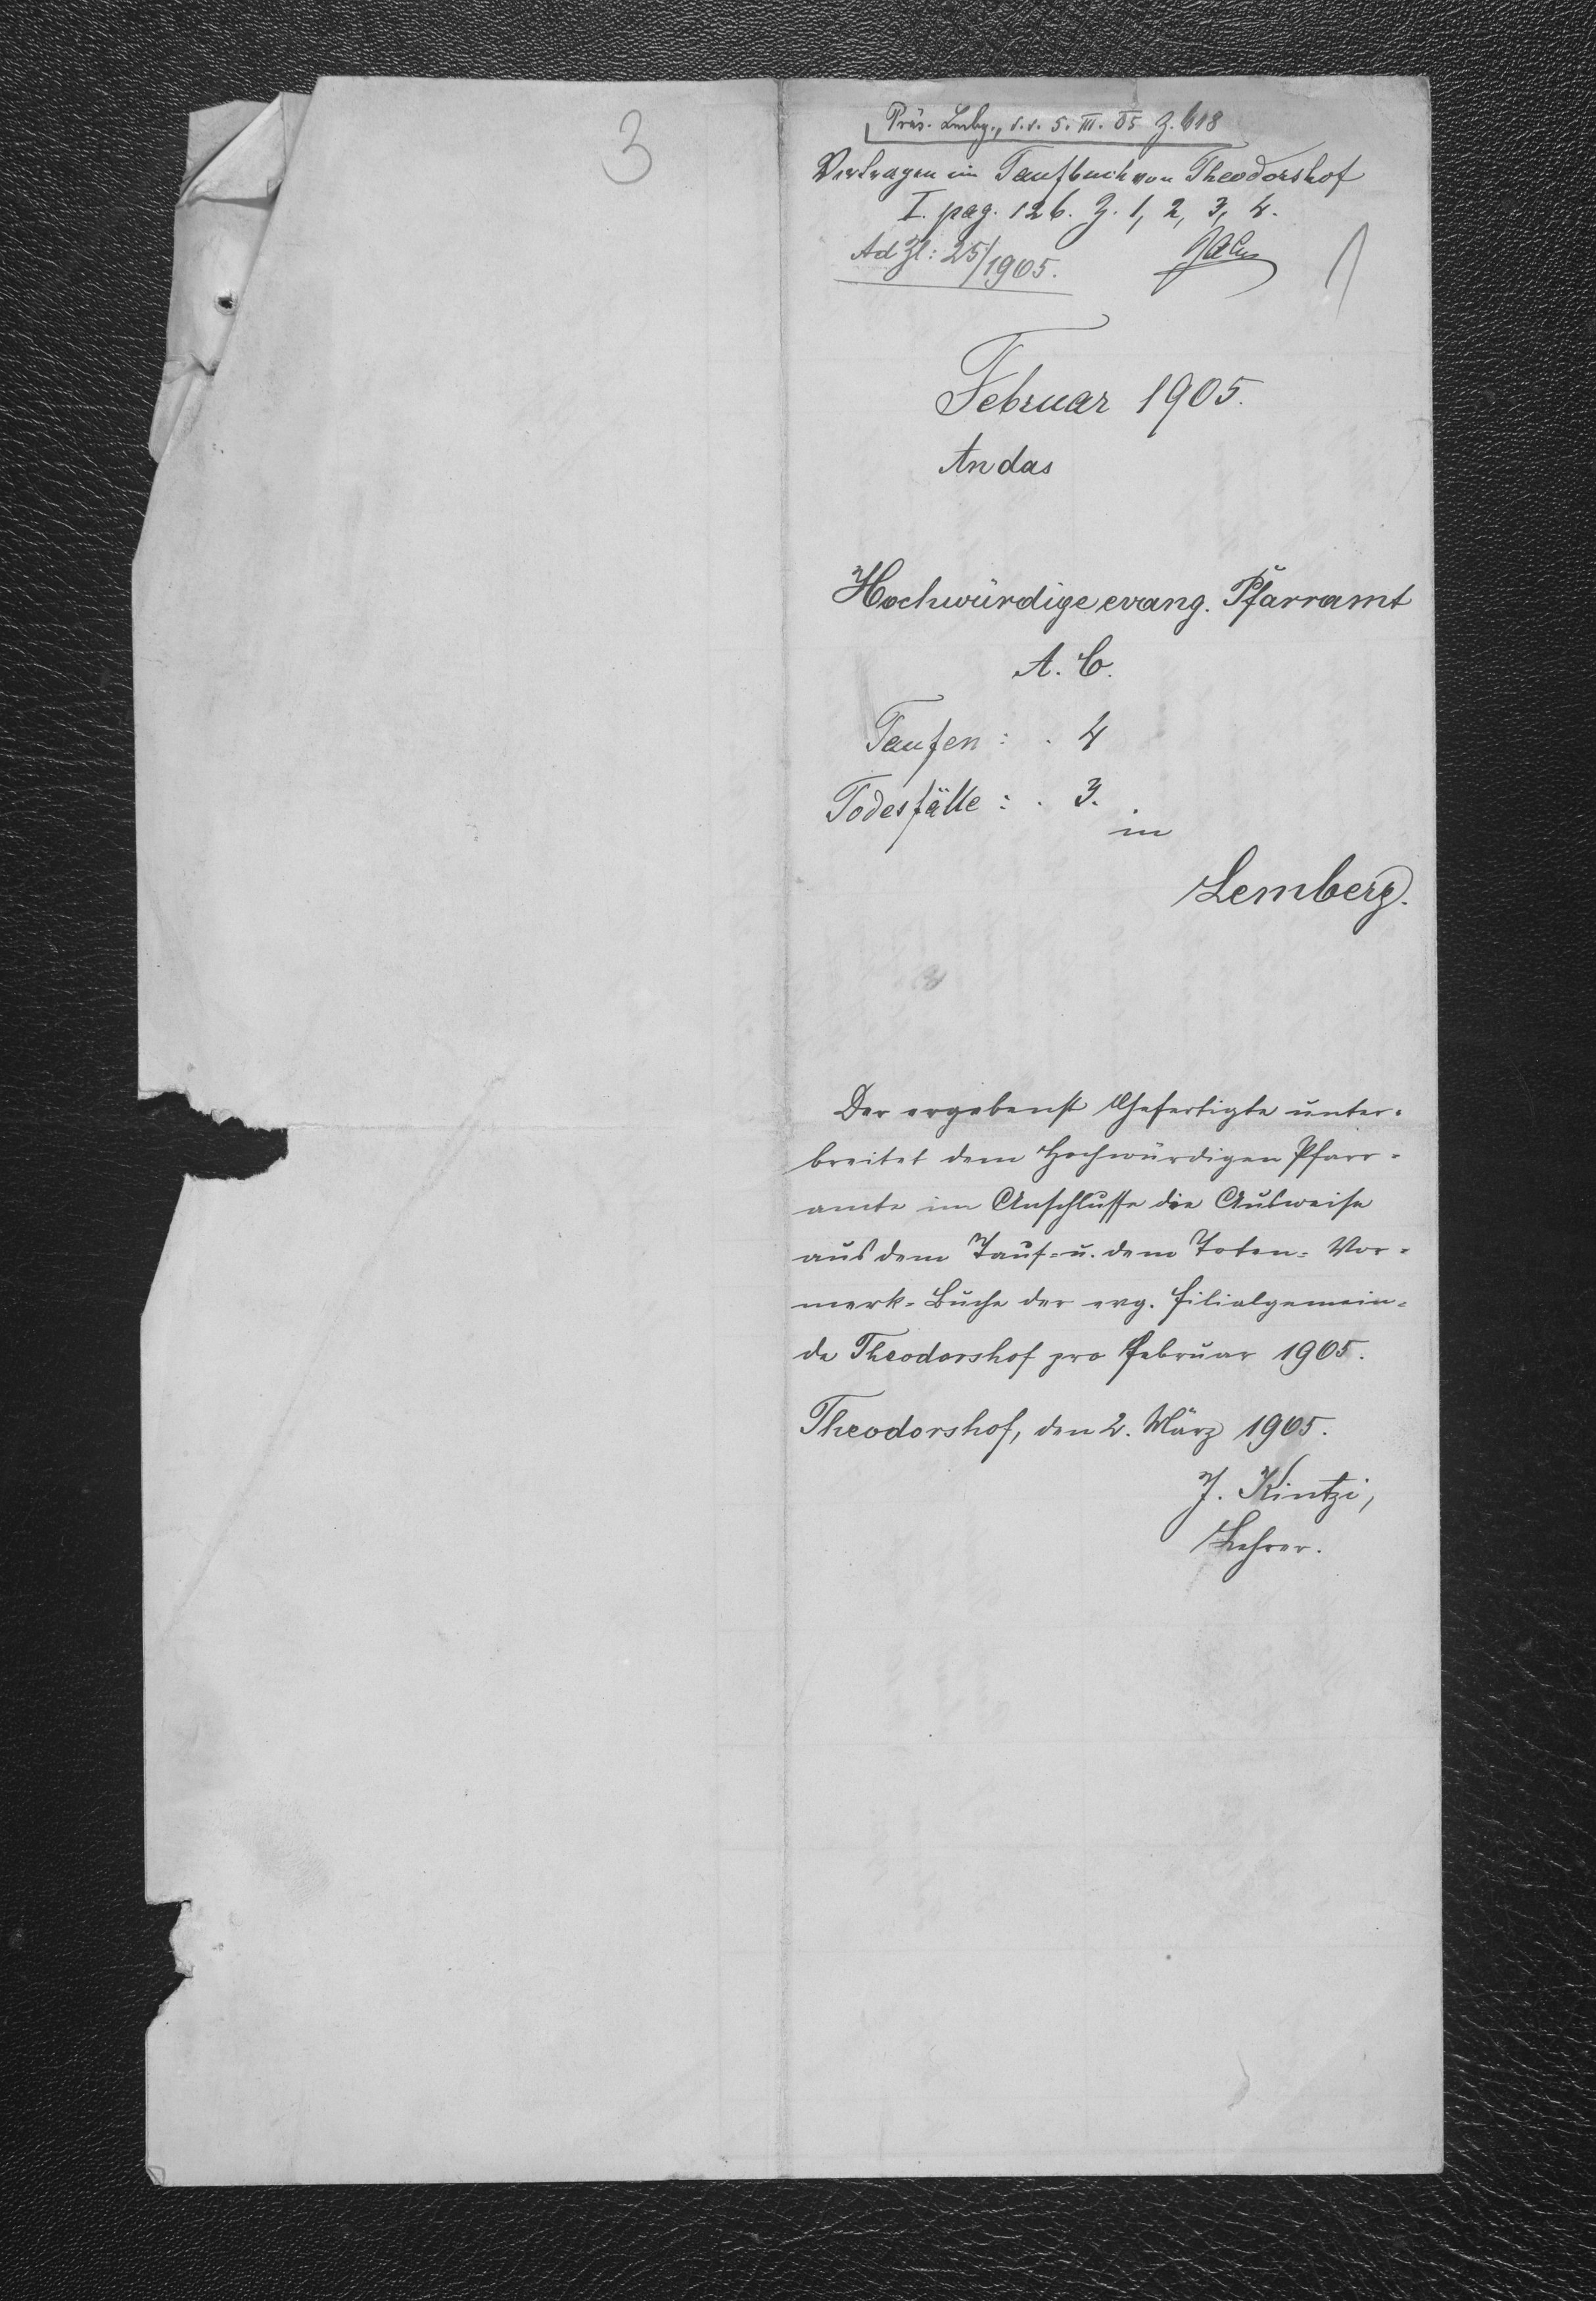 3
Präs. Lmbg., d.d. 5. III. 05 Z. 618
Vertragen im Taufbuch von Theodorshof
I. pag. 126. Z. 1, 2, 3, 4.
Ad Zl: 25/1905.
Februar 1905.
An das
Hochwürdige evang. Pfarramt
A. C.
Taufen : . 4
Todesfälle : . 3.
in
Lemberg.
Der ergebenst Gefertigte unter=
breitet dem Hochwürdigen Pfarr=
amte im Anschlusse die Ausweise
aus dem Tauf= u. dem Toten= Vor=
merk= Buche der evg. Filialgemein=
de Theodorshof pro Februar 1905.
Theodorshof, den 2. März 1905.
J. Kintzi,
Lehrer.